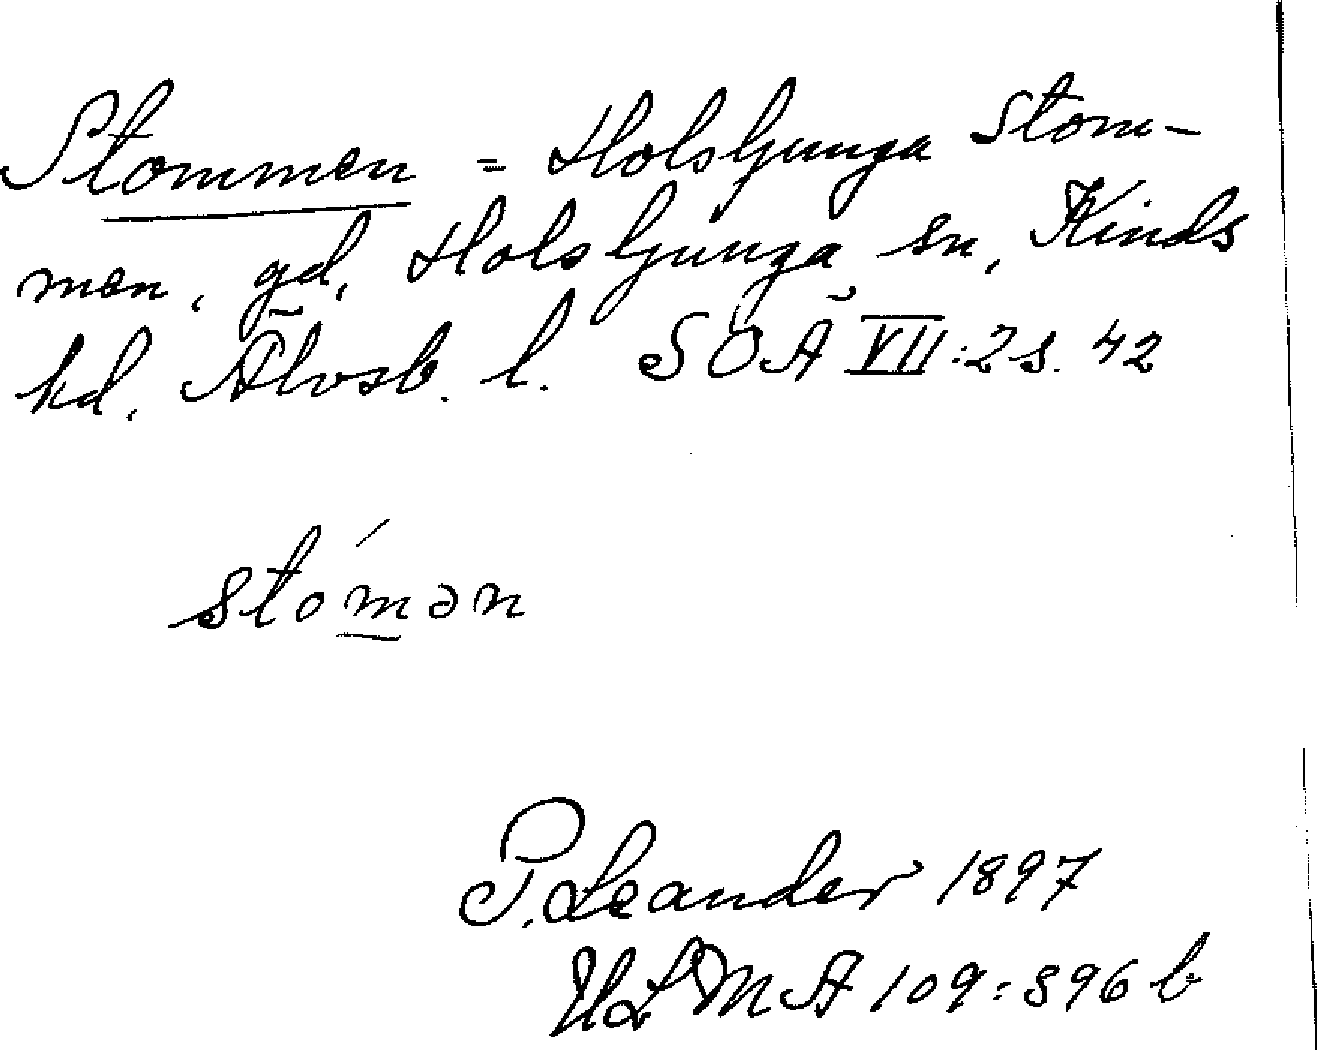 Stommen = Holsljunga Stom-
men, gd, Holsljunga sn, Kinds
hd. Älvsb. l. SOÄ VII:2 s. 42
stómən
P. Leander 1897
ULMA 109:896 b